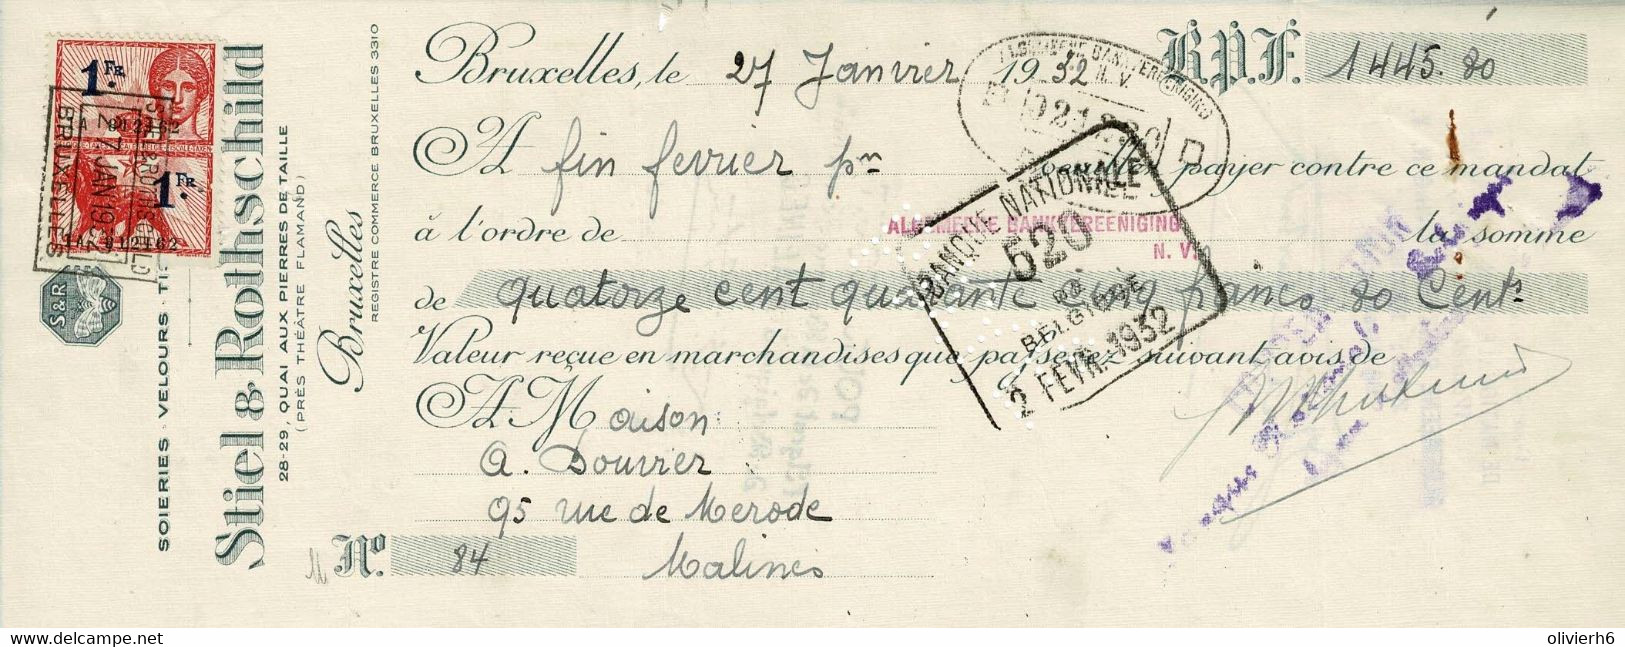 Bruxelles, le 27 Janvier 1932 B.P.F. 1445.80
A fin fevrier pn payer contre ce mandat
à l'ordre de ALGEMEENE BANKVEREENIGING la somme
N. V.
de quatorze cent quarante cinq francs 80 Cents
Valeur reçue en marchandises que passerez suivant avis de
A M Maison
A. Douvrier
95 rue de Merode
No. 84 Malines
SOIERIES · VELOURS ·
Stiel & Rothschild
28-29, QUAI AUX PIERRES DE TAILLE
(PRÈS THÉÂTRE FLAMAND)
Bruxelles
REGISTRE COMMERCE BRUXELLES 3310
S&R
1 FR.
1 FR.
27 JAN 193
BRUXELLES
ALGEMEENE BANKVEREENIGING
N. V.
BANQUE NATIONALE
520
DE
BELGIQUE
2 FEVR. 1932
olivierh6